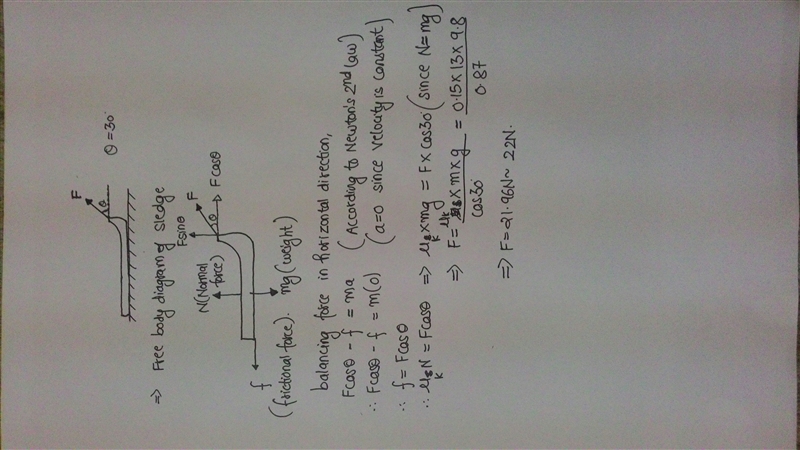 F
θ
θ = 30°
⇒ Free body diagram of sledge
Fsinθ
F
θ
Fcosθ
N(Normal force)
f
(frictional force).
mg (weight)
balancing force in horizontal direction,
Fcosθ - f = ma (According to Newton's 2nd law)
∴ Fcosθ - f = m(0) (a=0 since velocity is constant)
∴ f = Fcosθ
∴ μk N = Fcosθ ⇒ μk × mg = F × cos30 (since N=mg)
⇒ F = μk × m × g / cos30 = 0.15 × 13 × 9.8 / 0.87
⇒ F = 21.96N ~ 22N.